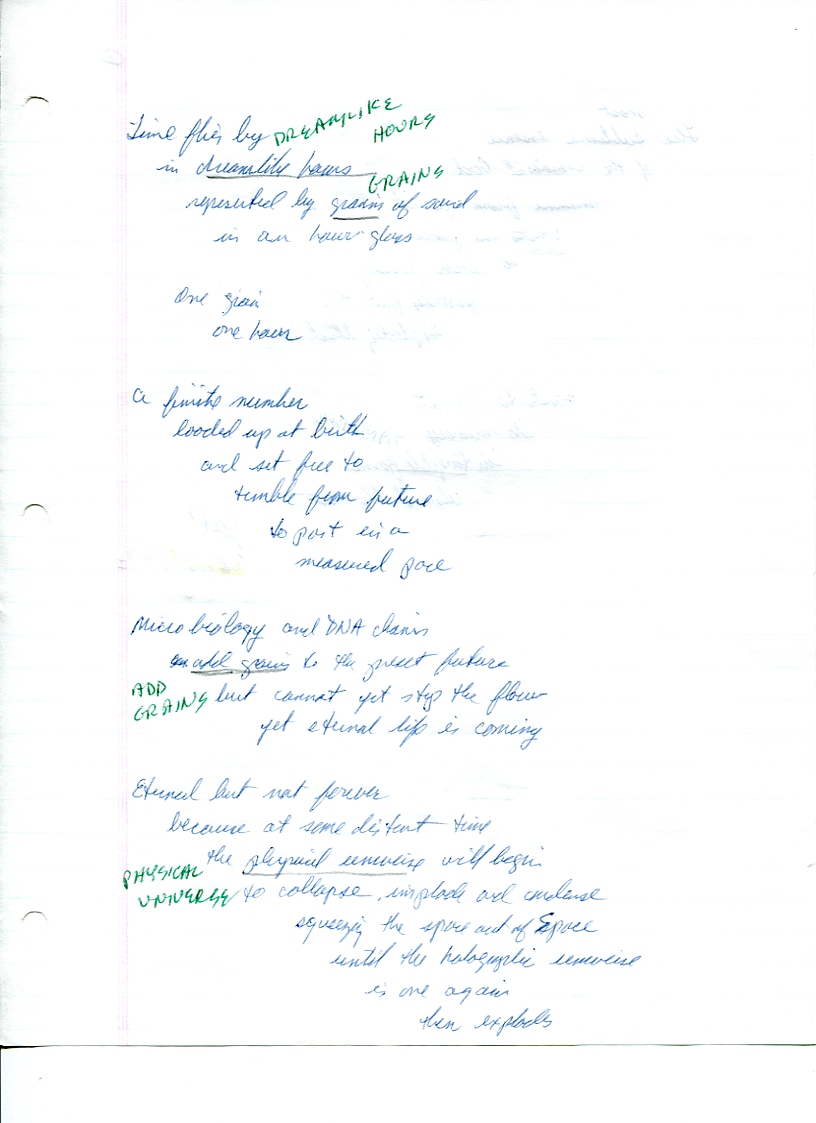 Time flies by DREAMLIKE
HOURS
in dreamlike hours
GRAINS
represented by grains of sand
in an hour glass
One grain
one hour
a finite number
loaded up at birth
and set free to
tumble from future
to past in a
measured pace
Microbiology and DNA chains
add grains to the future
ADD
GRAINS but cannot yet stop the flow
yet eternal life is coming
Eternal but not forever
because at some distant time
the physical universe will begin
PHYSICAL
UNIVERSE to collapse, implode and condense
squeezing the space out of Space
until the holographic universe
is one again
then explodes